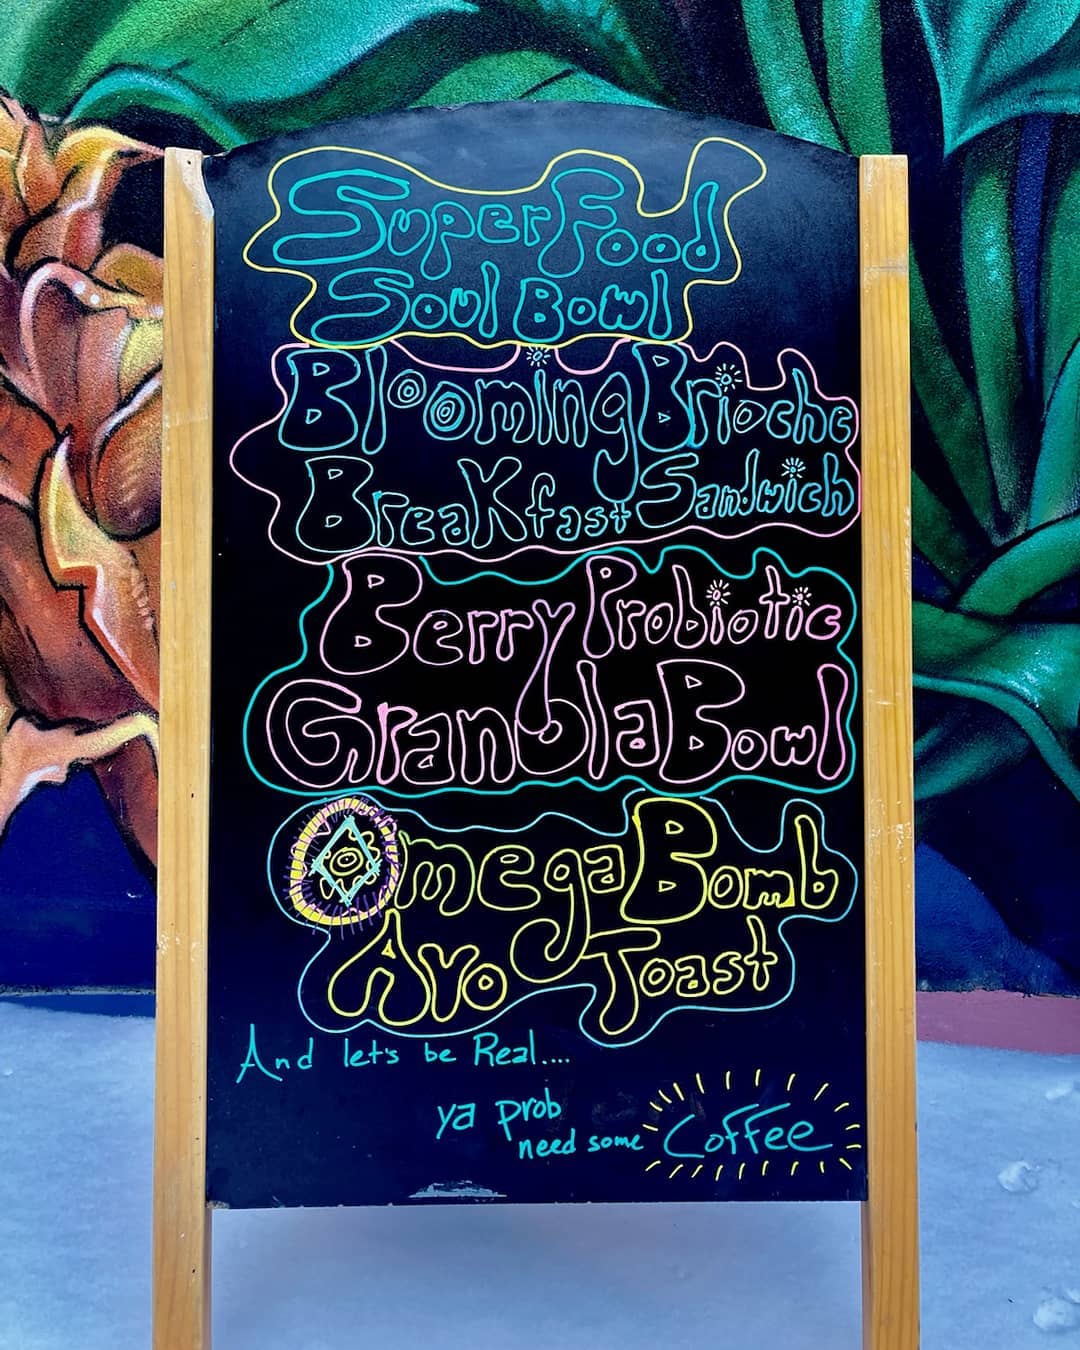 SuperFood
Soul Bowl
Blooming Brioche
Breakfast Sandwich
Berry Probiotic
Granola Bowl
Omega Bomb
Avo Toast
And let's be Real....
ya prob
need some Coffee